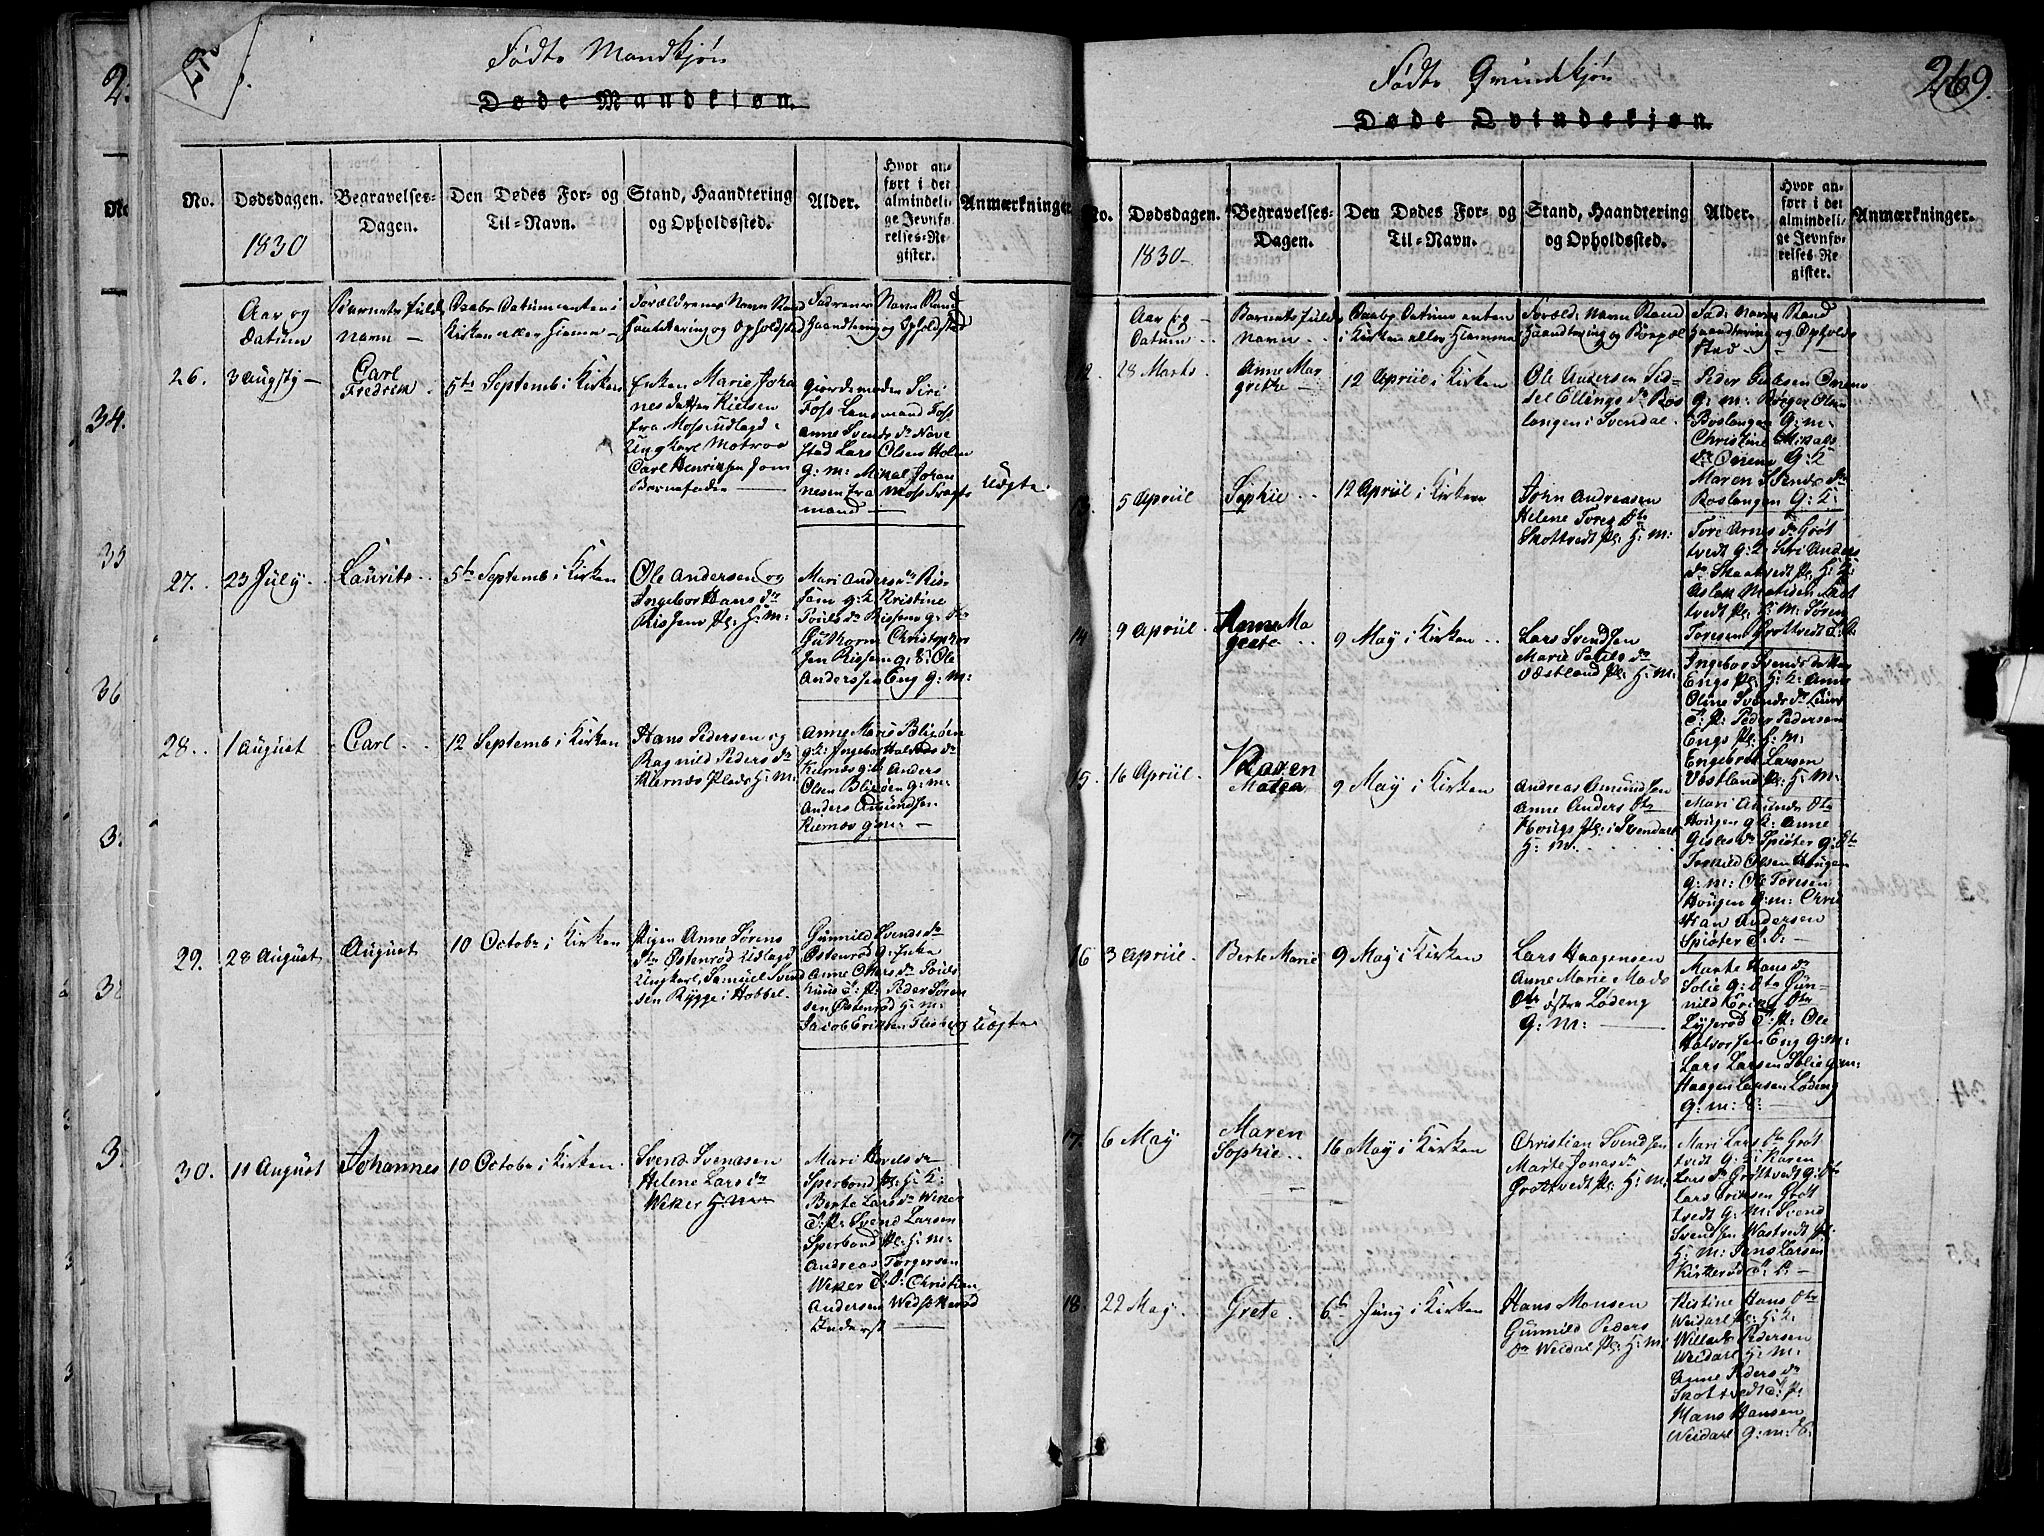 Fødte Mandkjøn
Døde Mandkiøn.
No.
Dødsdagen.
1830
Begravelses-
Dagen.
Den Dødes For- og
Til-Navn.
Stand, Haandtering
og Opholdssted.
Alder.
Hvor an-
ført i det
almindeli-
ge Jevnfø-
relses-Re-
gister.
Anmærkninger.
Aar og
Datum
Barnets fulde
Navn
Daabs Datum enten i
Kirken eller Hiemme
Forældrenes Navn Stand
Haandtering og Opholdsted
Faddernes Navn Stand
Haandtering og Opholdsted
26.
3 Augsty
Carl
Fredrik
5te Septemb i Kirken
Enken Marie Joha
nesdatter Nielsen
fra Moss udlagd
Ungkarl Matros
Carl Henriksen som
Barnefader
Giordemoder Siri
Foss Lensmand Foss
Anne Svends dr Nave
stad Lars Olsen Holen
g: m: Mikal Johan
nesen fra Moss Fragt
mand
Uægte
27.
23 July
Laurits
5te Septemb i Kirken
Ole Andersen og
Ingebor Hans dr
Rissem pl: H: M:
Mari Anders dr Ris-
sem g: k Kristine
Pouls dr Rissem g: dr
Guthorm Christophers
sen Rissem g: S: Ole
Anderssen Eng g: m:
28.
1 August
Carl
12 Septemb i Kirken
Hans Pedersen og
Ragnild Peders dr
Kiernæs Plads H: M:
Anne Marie Blixøen
g: k: Ingebor Halvors dr
Kiernæs g: k Anders
Olsen Blixøen g: m:
Anders Amundsen
Kiernæs g: m:
29.
28 August
August
10 Octobr i Kirken
Pigen Anne Sørens
dtr Østenrød Udlagd
Ungkarl Samuel Svend
sen Rygge i Hobbel.
Gunnild Svends dr
Østenrød g: Enke
Anne Olters dr Pouls
hund T: p: Peder Søren
sen Østenrød H: m:
Jacob Eriksen
Uægte
30.
11 August
Johannes
10 Octobr i Kirken
Svend Svendsen
Helene Lars dr
Weker H: M:
Mari Havels dr
Sperbond pl: H: K:
Berte Lars dr Weker
T: p: Svend Larsen
Sperbond pl: H: m:
Andreas Torgersen
Weker T: D: Christian
Andersen Wedsetterød
Inderst
Fødte Qvindekjøn
269.
Døde Qvindekjøn.
No.
Dødsdagen.
1830
Begravelses-
Dagen.
Den Dødes For- og
Til-Navn.
Stand, Haandtering
og Opholdssted.
Alder.
Hvor an-
ført i det
almindeli-
ge Jevnfø-
relses-Re-
gister.
Anmærkninger.
Aar og
Datum
Barnets fulde
Navn
Daabs Datum enten
i Kirken eller Hiemme
Foræld: Navn Stand
Haandtering og Bopæl
Fad: Navn Stand
Haandtering og Ophold
sted
28 Marts
Anne Mar
grethe
12 Apriil i Kirken
Ole Andersen Sid-
sel Ellings dr Ros
langen i Svendal
g: m: Børger Olsen
Roslangen g: m:
Christine Mikals
dr Omene g: k
Maren Svends dr
Roslangen g: k:
5 Apriil
Sophie
12 Apriil i Kirken
John Andreasen
Helene Tores dtr
Skottvedt pl: H: M:
Tore Arnes dr Grøt
tvedt g: k Siri Anders
dr Skottvedt pl: H: k:
Aslak Matisen Løst
tvedt pl: H: M: Søren
Toresen Grøttvedt T: D:
14
9 Apriil
Anne Ma
grete
9 May i Kirken
Lars Svendsen
Marie Pouls dr
Vestland pl: H: M:
Ingebor Svends datter
Engs pl: H: k: Anne
Oline Svends dr
T: p: Peder Pedersen
Engs pl: H: M:
Engebret Larsen
Vestland pl: H: M:
15
16 Apriil
Karen
Matea
9 May i Kirken
Andreas Amundsen
Anne Anders dtr
Hougs pl: i Svendal
H: M:
Mari Amunds dtr
Hougen g: k: Anne
Gislis dr Spiøter g: dtr
Torkild Olsen Hougen
g: m: Ole Toresen
Hougen g: m: Chris
tian Andersen
Spiøter T: D:
16
3 Apriil
Berte Marie
9 May i Kirken
Lars Haagensen
Anne Marie Mads
dtr østre Lødeng
g: m:
Marte Hans dr
Solie g: dtr Gun-
nild Kørings dtr
Lyserød T: p: Ole
Halvorsen Eng g: m:
Lars Larsen Solie g: m:
Haagen Larsen Lødeng
g: m: S:
17.
6 May
Maren
Sophie
16 May i Kirken
Christian Svendsen
Marte Jonas dr
Grøttvedt pl: H: M:
Mari Lars dtr Grøt
tvedt g: k: Karen
Lars dr Grøttvedt g: dtr
Lars Eriksen Grøt
tvedt g: m: Svend
Svendsen Wastvedt pl:
H: M: Jens Larsen
Kirkerød T: D:
18.
22 May
Grete
6te Juny i Kirken
Hans Monsen
Gunnild Peders
dr Weidal pl: H: M:
Kistine Hans dtr
Weidarl pl: H: k:
Willads Pedersen
Weidarl H: M:
Anne Peders dr
Skottvedt T: p:
Mans Hansen
Weidarl g: m: S:
34.
35
36